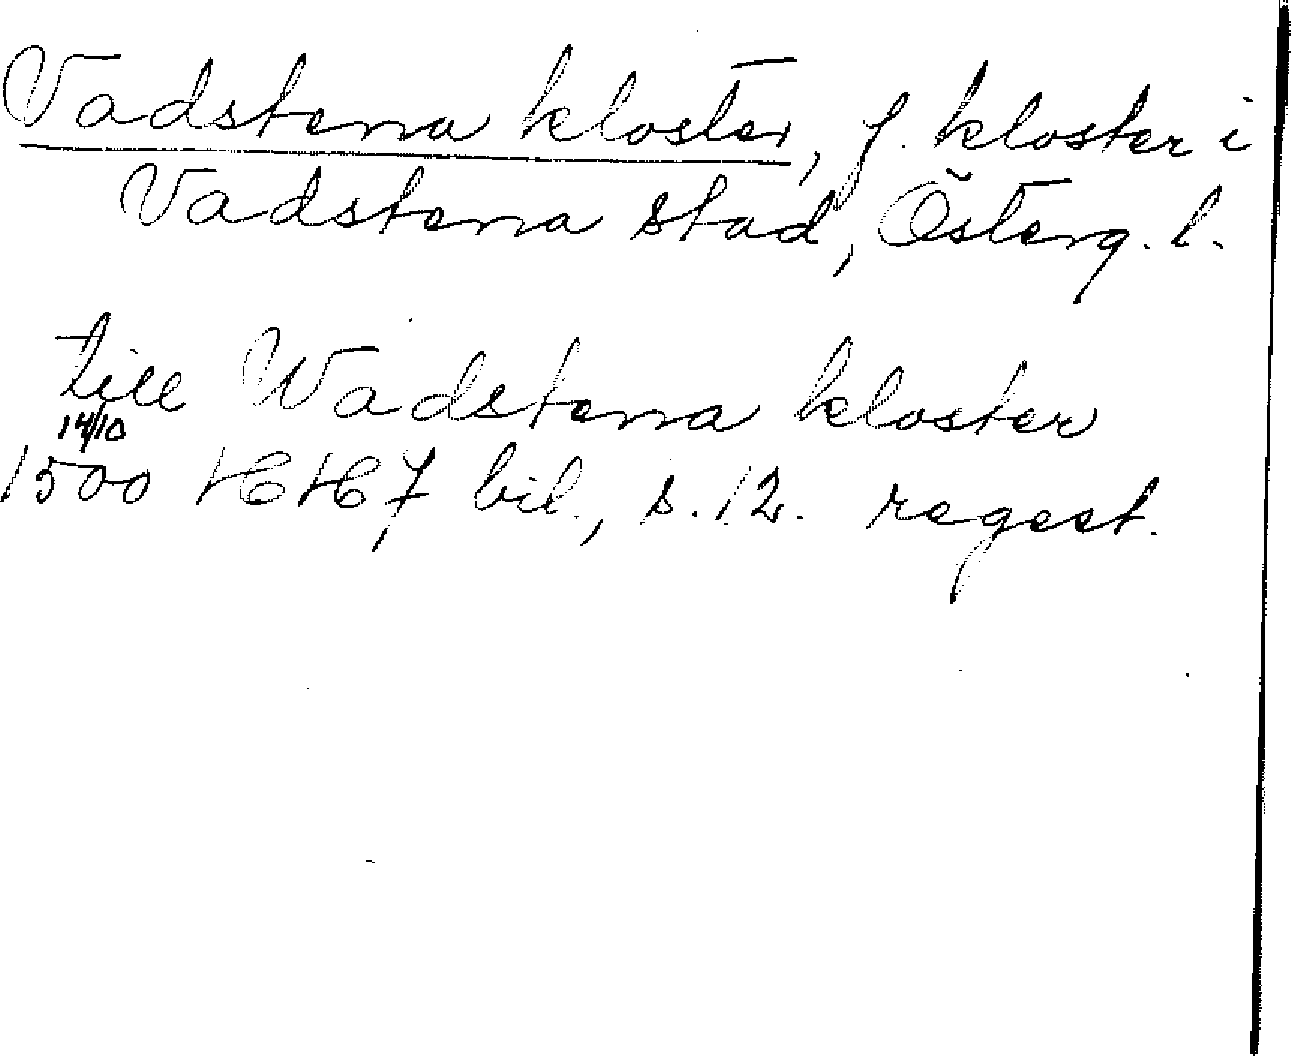 Vadstena kloster, f. kloster i
Vadstena stad, Österg. l.
till Wadstena kloster
14/10
1500 HH 7 bil., s. 12. regest.